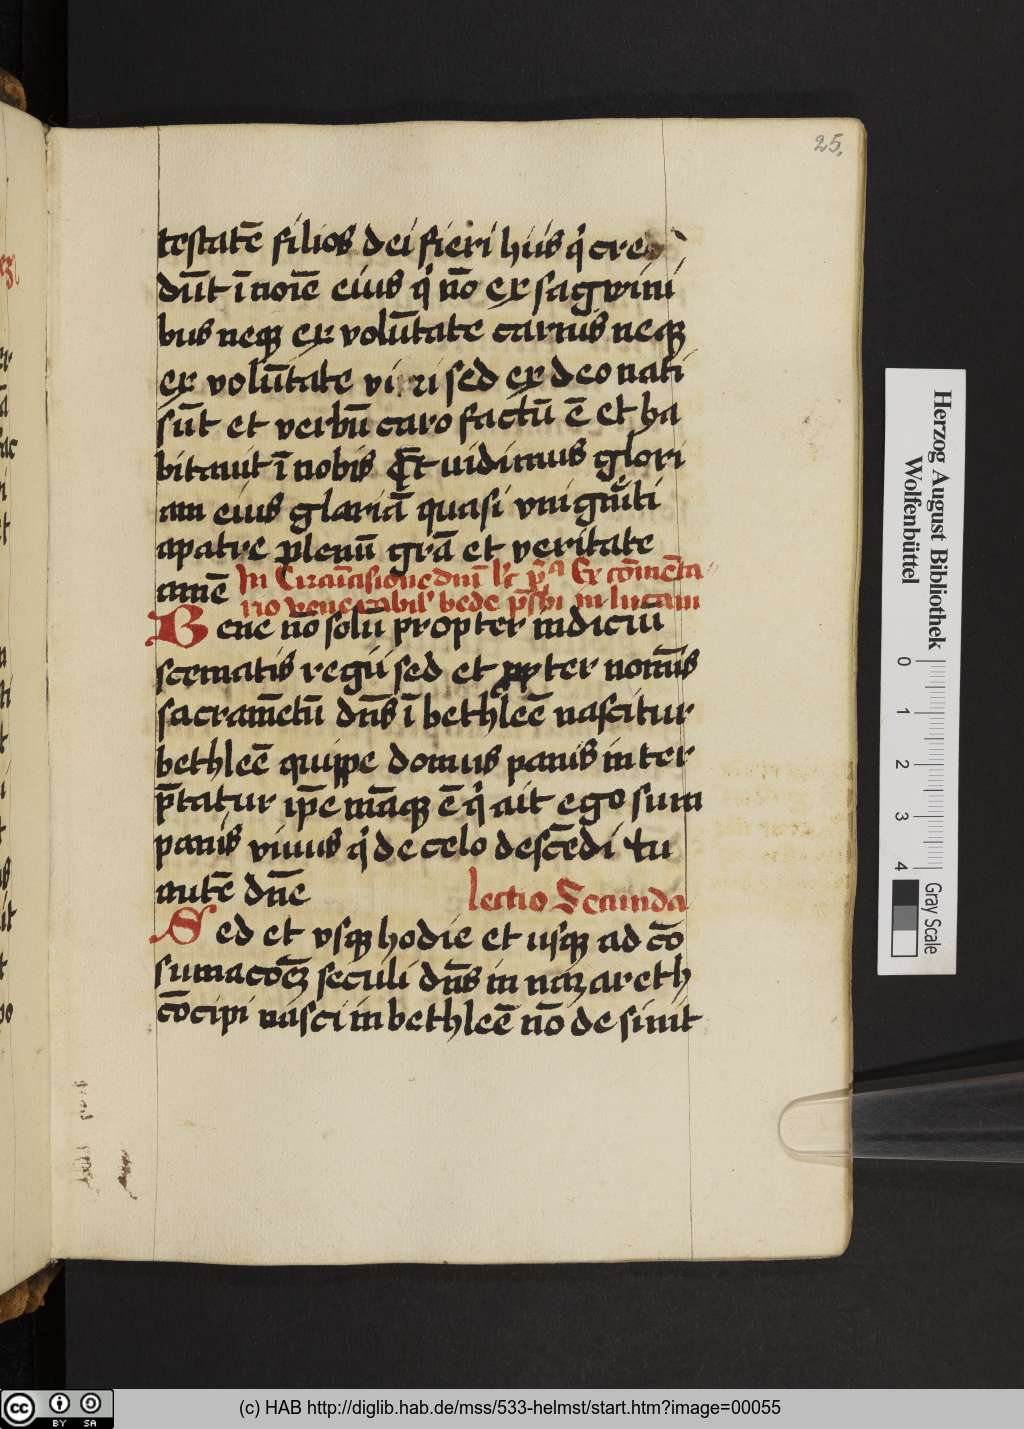 25.
testatē filios dei fieri hiis q̇ cre
dūt ī noīe eius q̇ nō ex sagwini
bus neqꝫ ex volūtate carnis neqꝫ
ex volūtate vi ri sed ex deo nati
sūt et verbū caro factū ē et ha
bitauit ī nobis Et uidimus glori
am eius glariā quasi vnigēiti
apatre plenū grā et veritate
amē In Circūcisione dnī lc̄ pͣ Ex cōmēta
rio venerabil' bede p̄sbi in lucam
Bene nō solū propter indiciū
scematis regii sed et propter nominis
sacramētū dn̄s ī bethleē nascitur
bethleē quippe domus panis inter
p̄tatur ip̄e māqꝫ ē q̇ ait ego sum
panis viuus q̇ de celo descēdi tu
autē dn̄e lectio Secunda
Sed et vsqꝫ hodie et usqꝫ ad cō
sumacōeꝫ seculi dn̄s in nazareth
cōcipi nasci in bethleē nō desinit
Herzog August Bibliothek
Wolfenbüttel
0 1 2 3 4
Gray Scale
cc BY SA
(c) HAB http://diglib.hab.de/mss/533-helmst/start.htm?image=00055